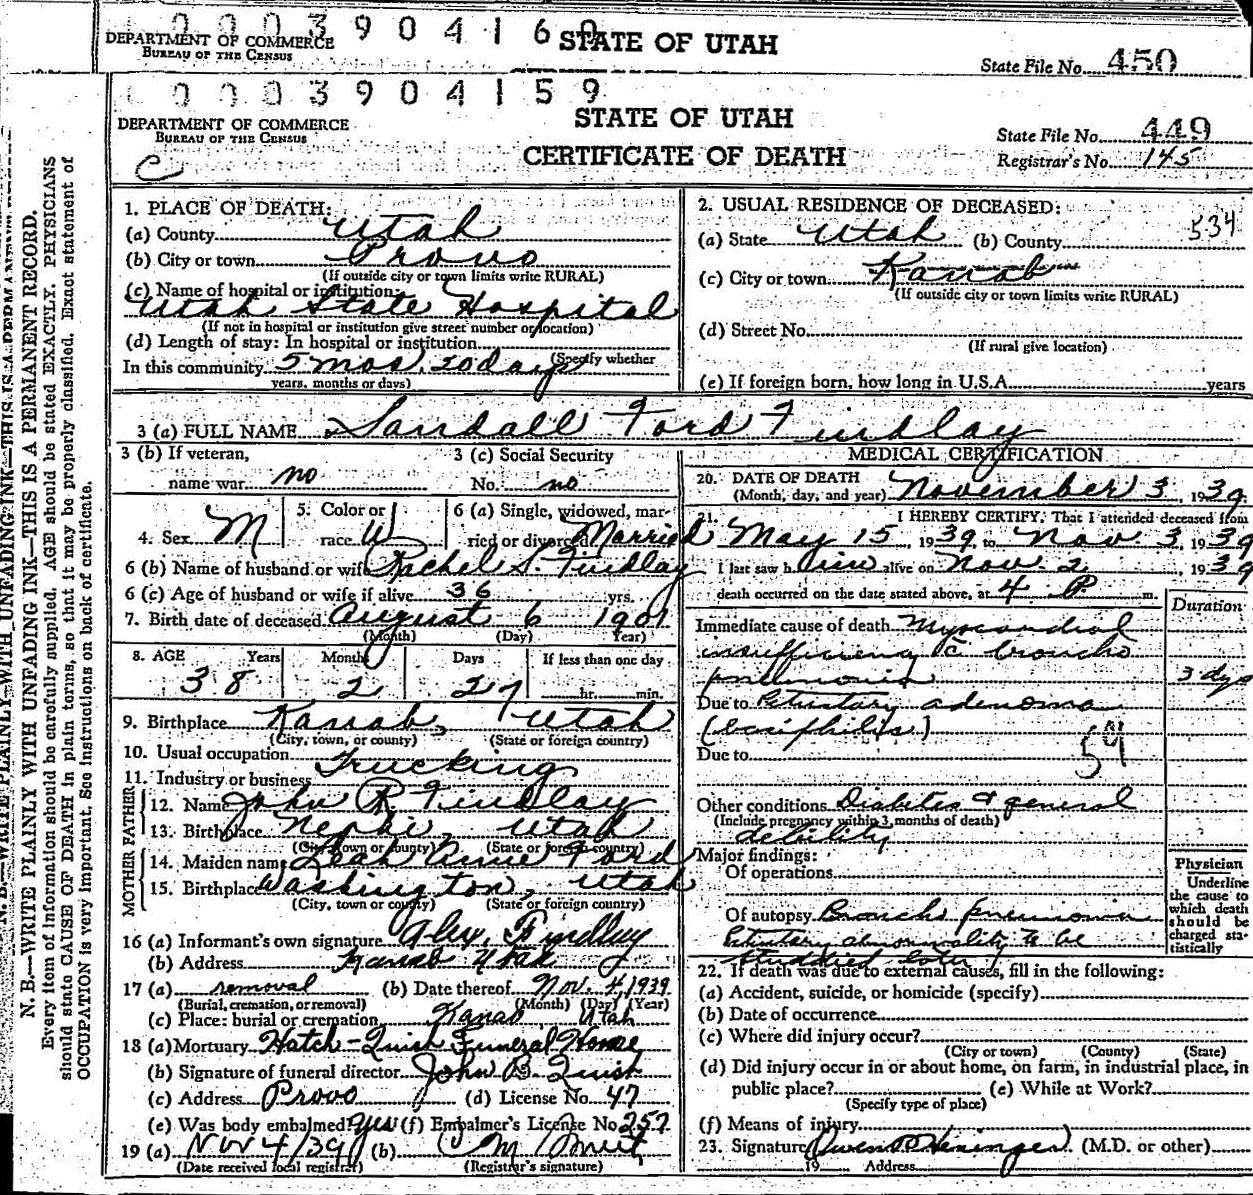 0003904160
DEPARTMENT OF COMMERCE
BUREAU OF THE CENSUS
STATE OF UTAH
State File No. 450
0003904159
DEPARTMENT OF COMMERCE
BUREAU OF THE CENSUS
C
STATE OF UTAH
CERTIFICATE OF DEATH
State File No. 449
Registrar's No. 145
N. B.—WRITE PLAINLY WITH UNFADING INK—THIS IS A PERMANENT RECORD.
Every item of information should be carefully supplied. AGE should be stated EXACTLY. PHYSICIANS
should state CAUSE OF DEATH in plain terms, so that it may be properly classified. Exact statement of
OCCUPATION is very important. See instructions on back of certificate.
1. PLACE OF DEATH:
(a) County Utah
(b) City or town Provo
(If outside city or town limits write RURAL)
(c) Name of hospital or institution:
Utah State Hospital
(If not in hospital or institution give street number or location)
(d) Length of stay: In hospital or institution
(Specify whether
In this community 5 mos. 20 days
years, months or days)
2. USUAL RESIDENCE OF DECEASED:
534
(a) State Utah (b) County
(c) City or town Kanab
(If outside city or town limits write RURAL)
(d) Street No.
(If rural give location)
(e) If foreign born, how long in U.S.A. years
3 (a) FULL NAME Sandall Ford Findlay
3 (b) If veteran, name war no
3 (c) Social Security No. no
4. Sex M
5. Color or race W
6 (a) Single, widowed, married or divorced Married
6 (b) Name of husband or wife Rachel S. Findlay
6 (c) Age of husband or wife if alive 36 yrs.
7. Birth date of deceased August 6 1901
(Month) (Day) Year)
8. AGE Years Months Days If less than one day
38 2 27 hr. min.
9. Birthplace Kanab, Utah
(City, town, or county) (State or foreign country)
10. Usual occupation Trucking
11. Industry or business
FATHER
12. Name John R. Findlay
13. Birthplace Nephi, Utah
(City, town or county) (State or foreign country)
MOTHER
14. Maiden name Leah Ford
15. Birthplace Washington, Utah
(City, town or county) (State or foreign country)
16 (a) Informant's own signature Alex. Findlay
(b) Address Kanab Utah
17 (a) removal (b) Date thereof Nov. 4, 1939
(Burial, cremation, or removal) (Month) (Day) (Year)
(c) Place: burial or cremation Kanab Utah
18 (a) Mortuary Hatch- Funeral Home
(b) Signature of funeral director John B.
(c) Address Provo (d) License No. 47
(e) Was body embalmed? Yes (f) Embalmer's License No. 257
19 (a) Nov 4/39 (b) C M
(Date received local registrar) (Registrar's signature)
MEDICAL CERTIFICATION
20. DATE OF DEATH
(Month, day, and year) November 3, 1939.
21. I HEREBY CERTIFY, That I attended deceased from
May 15, 1939 to Nov. 3, 1939
I last saw him alive on Nov. 2, 1939
death occurred on the date stated above, at 4 P. m.
Duration
Immediate cause of death Myocardial
insufficiency c̄ broncho
pneumonia 3 dys
Due to Pituitary adenoma
Due to
54
Other conditions Diabetes & general
(Include pregnancy within 3 months of death)
debility
Major findings:
Of operations
Of autopsy Broncho pneumonia
Pituitary abnormality to be
studied later
Physician
Underline
the cause to
which death
should be
charged sta-
tistically
22. If death was due to external causes, fill in the following:
(a) Accident, suicide, or homicide (specify)
(b) Date of occurrence
(c) Where did injury occur?
(City or town) (County) (State)
(d) Did injury occur in or about home, on farm, in industrial place, in
public place? (e) While at Work?
(Specify type of place)
(f) Means of injury
23. Signature Owen P. Heninger (M.D. or other)
19 Address